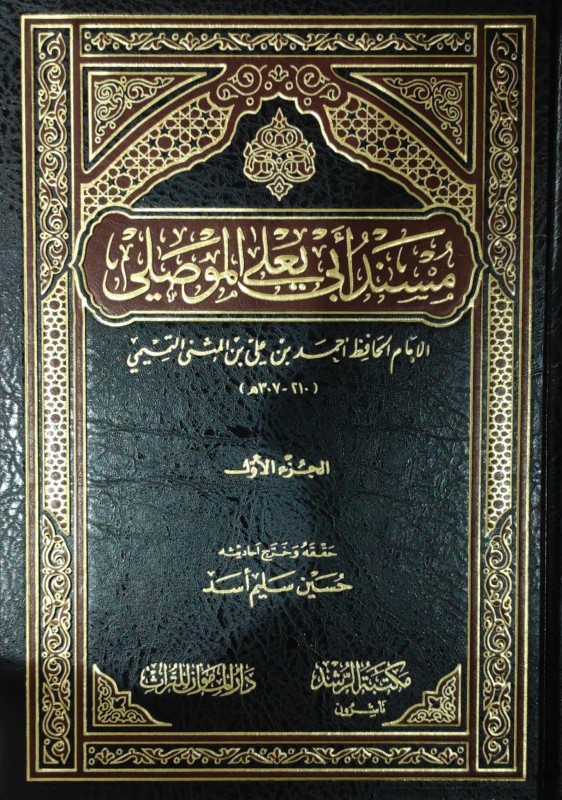 مُسْنَدُ أَبِي يَعْلَى المَوْصِلِي
الإمام الحافظ أحمد بن علي بن المثنى التميمي
(٢١٠ - ٣٠٧ هـ)
الجزء الأول
حَقَّقَهُ وَخَرَّجَ أَحَادِيثَهُ
حُسَيْن سَلِيم أَسَد
مكتبة الرشد
ناشرون
دار المأمون للتراث